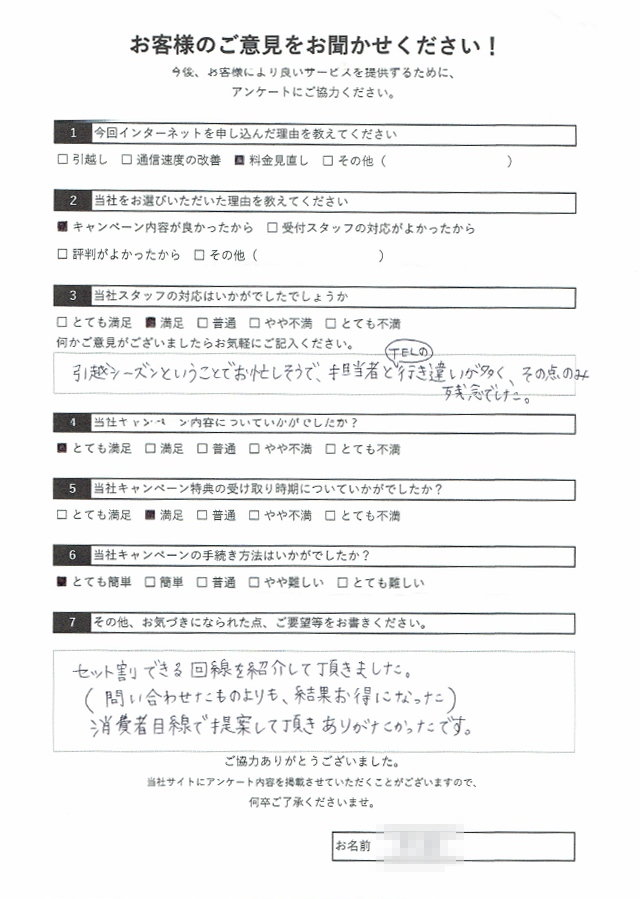 お客様のご意見をお聞かせください！
今後、お客様により良いサービスを提供するために、
アンケートにご協力ください。
1 今回インターネットを申し込んだ理由を教えてください
□ 引越し □ 通信速度の改善 ■ 料金見直し □ その他（ ）
2 当社をお選びいただいた理由を教えてください
■ キャンペーン内容が良かったから □ 受付スタッフの対応がよかったから
□ 評判がよかったから □ その他（ ）
3 当社スタッフの対応はいかがでしたでしょうか
□ とても満足 ■ 満足 □ 普通 □ やや不満 □ とても不満
何かご意見がございましたらお気軽にご記入ください。
引越シーズンということでお忙しそうで、担当者とTELの行き違いが多く、その点のみ
残念でした。
4 当社キャンペーン内容についていかがでしたか？
■ とても満足 □ 満足 □ 普通 □ やや不満 □ とても不満
5 当社キャンペーン特典の受け取り時期についていかがでしたか？
□ とても満足 ■ 満足 □ 普通 □ やや不満 □ とても不満
6 当社キャンペーンの手続き方法はいかがでしたか？
■ とても簡単 □ 簡単 □ 普通 □ やや難しい □ とても難しい
7 その他、お気づきになられた点、ご要望等をお書きください。
セット割できる回線を紹介して頂きました。
（問い合わせたものよりも、結果お得になった）
消費者目線で提案して頂きありがたかったです。
ご協力ありがとうございました。
当社サイトにアンケート内容を掲載させていただくことがございますので、
何卒ご了承くださいませ。
お名前